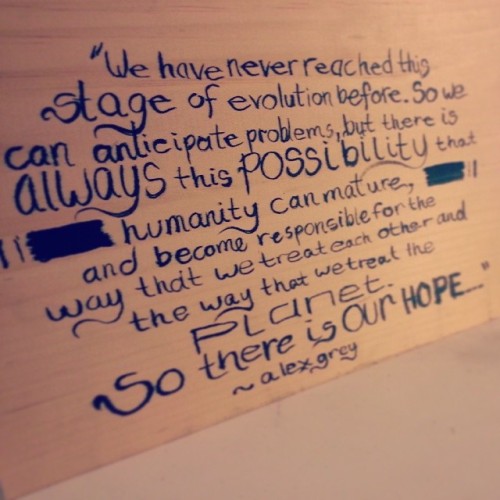 "We have never reached this
stage of evolution before. So we
can anticipate problems, but there is
always this POSSibility that
humanity can mature,
and become responsible for the
way that we treat each other and
the way that we treat the
Planet.
So there is OUR HOPE..."
~ alex grey